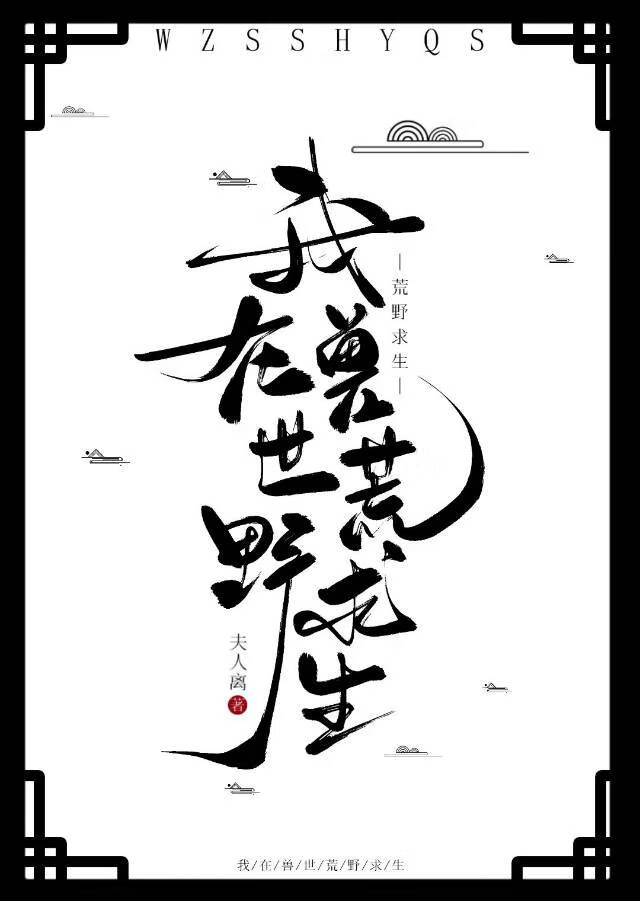 WZSSHYQS
我在兽世荒野求生
—荒野求生—
夫人离 著
我/在/兽/世/荒/野/求/生